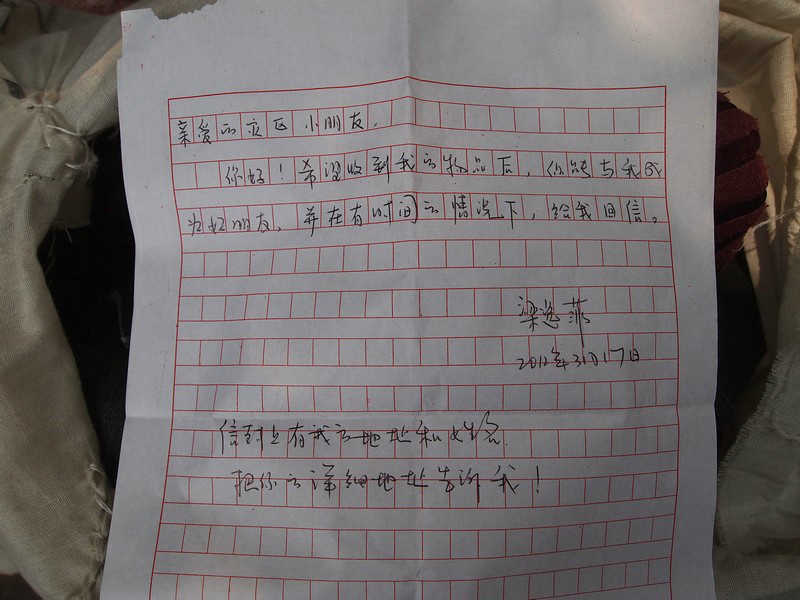 亲爱的灾区小朋友,
你好!希望收到我的物品后,你能与我成
为好朋友,并在有时间的情况下,给我回信。
梁逸菲
2012年3月17日
信封上有我的地址和姓名,
把你的详细地址告诉我!